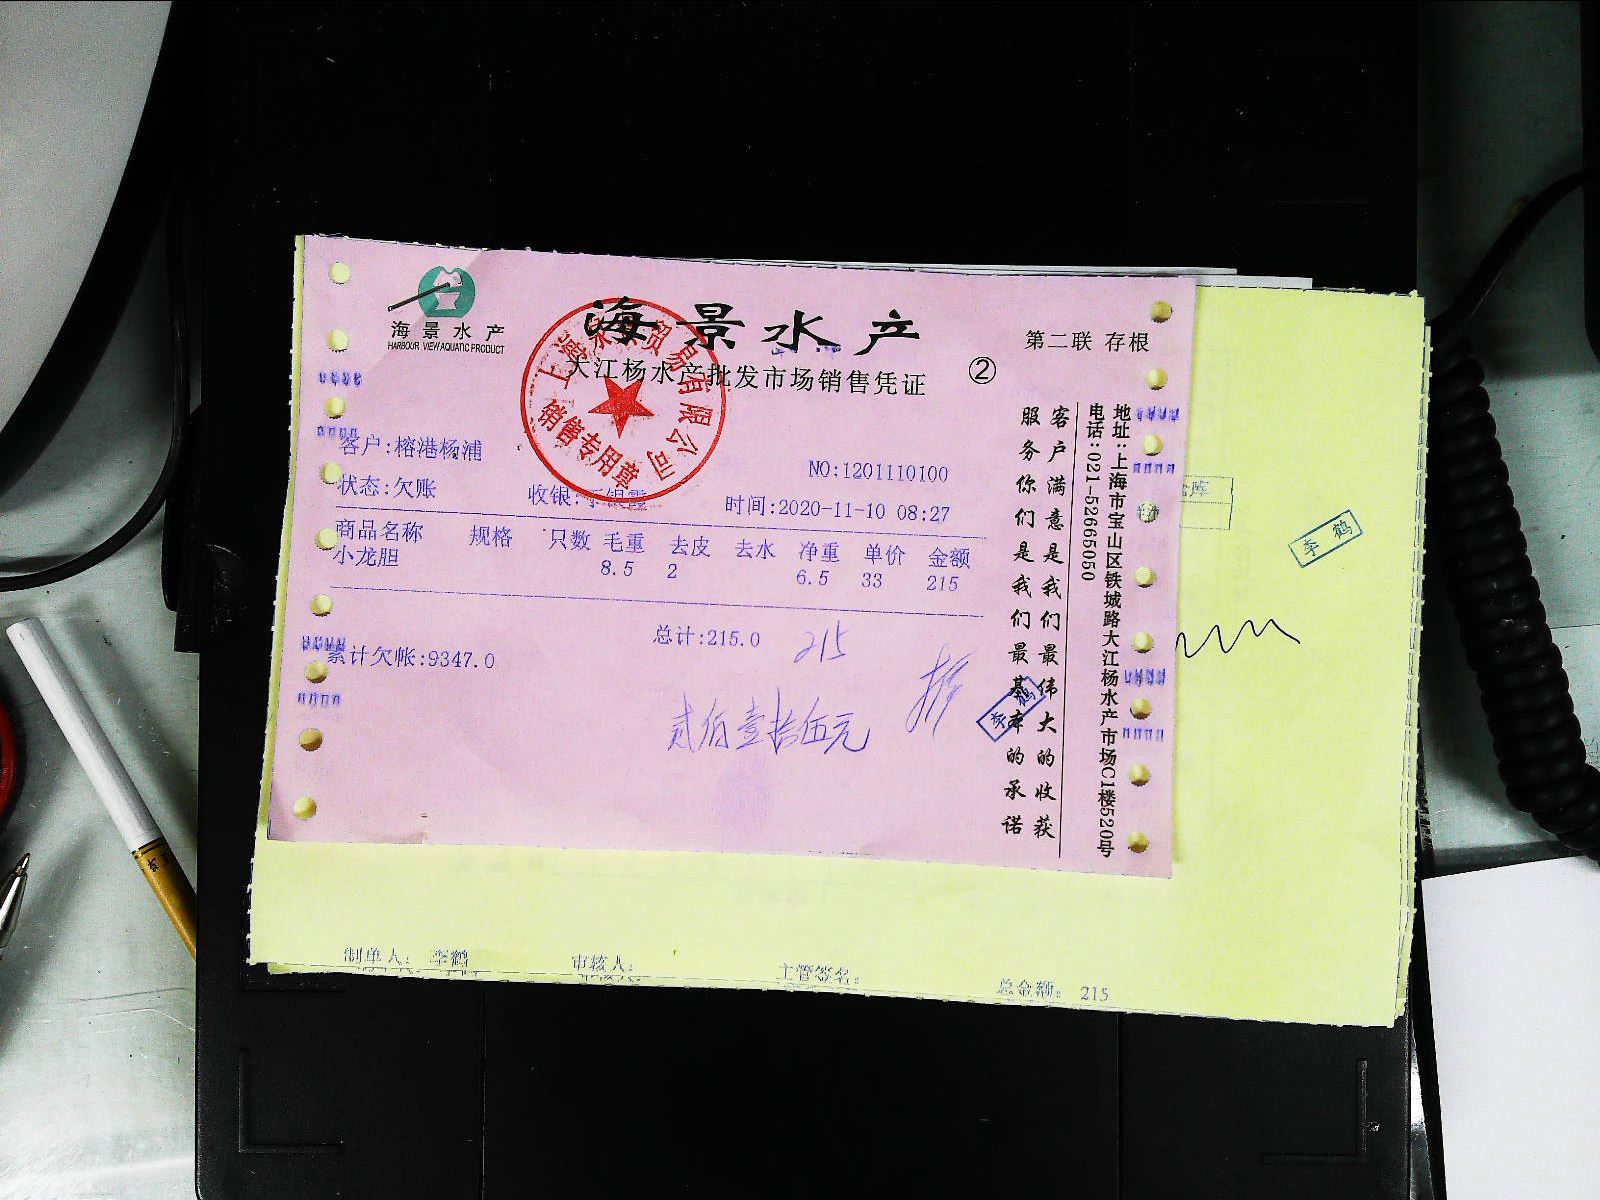 海景水产
HARBOUR VIEW AQUATIC PRODUCT
海景水产
大江杨水产批发市场销售凭证
②
第二联 存根
销售专用章
客户:榕港杨浦
NO:1201110100
状态:欠账
收银:李银霞
时间:2020-11-10 08:27
商品名称 规格 只数 毛重 去皮 去水 净重 单价 金额
小龙胆 8.5 2 6.5 33 215
总计:215.0
215
累计欠帐:9347.0
贰佰壹拾伍元
李鹤
客户满意是我们最伟大的收获
服务你们是我们最基本的承诺
地址:上海市宝山区铁城路大江杨水产市场C1楼520号
电话:021-52665050
李鹤
制单人: 李鹤 审核人: 主管签名: 总金额: 215